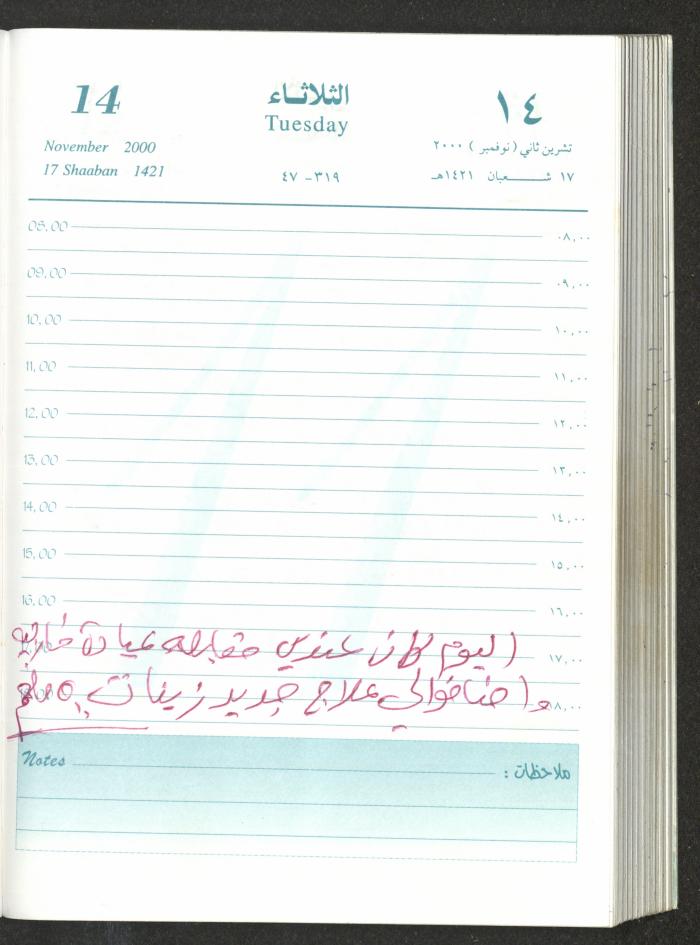 14 الثلاثاء ١٤
Tuesday
November 2000 تشرين ثاني (نوفمبر) ٢٠٠٠
17 Shaaban 1421 ٤٧ - ٣١٩ ١٧ شعبان ١٤٢١هـ
08,00 ٠٨,٠٠
09,00 ٠٩,٠٠
10,00 ١٠,٠٠
11,00 ١١,٠٠
12,00 ١٢,٠٠
13,00 ١٣,٠٠
14,00 ١٤,٠٠
15,00 ١٥,٠٠
16,00 ١٦,٠٠
اليوم كان عندي مقابله عيادة خارجيه
١٧,٠٠
واضافوا لي علاج جديد زينات
٠٨,٠٠
Notes ملاحظات :